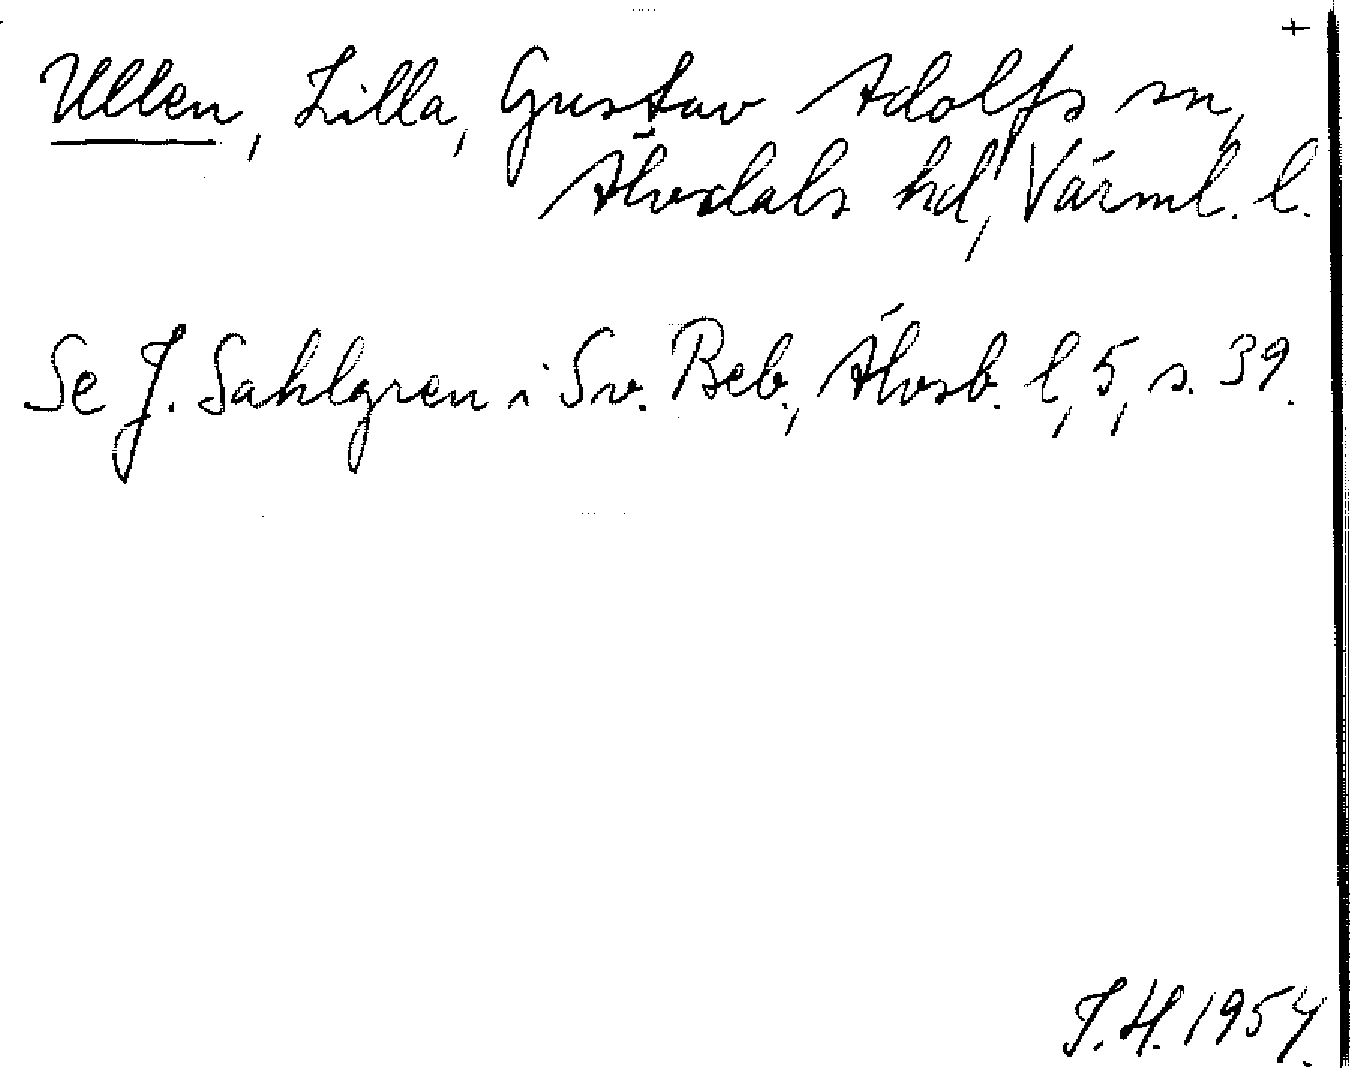 +
Ullen, Lilla, Gustav Adolfs sn,
Älvdals hd, Värml. l.
Se J. Sahlgren i Sv. Beb., Älvsb. l, 5, s. 39.
J.H. 1954.